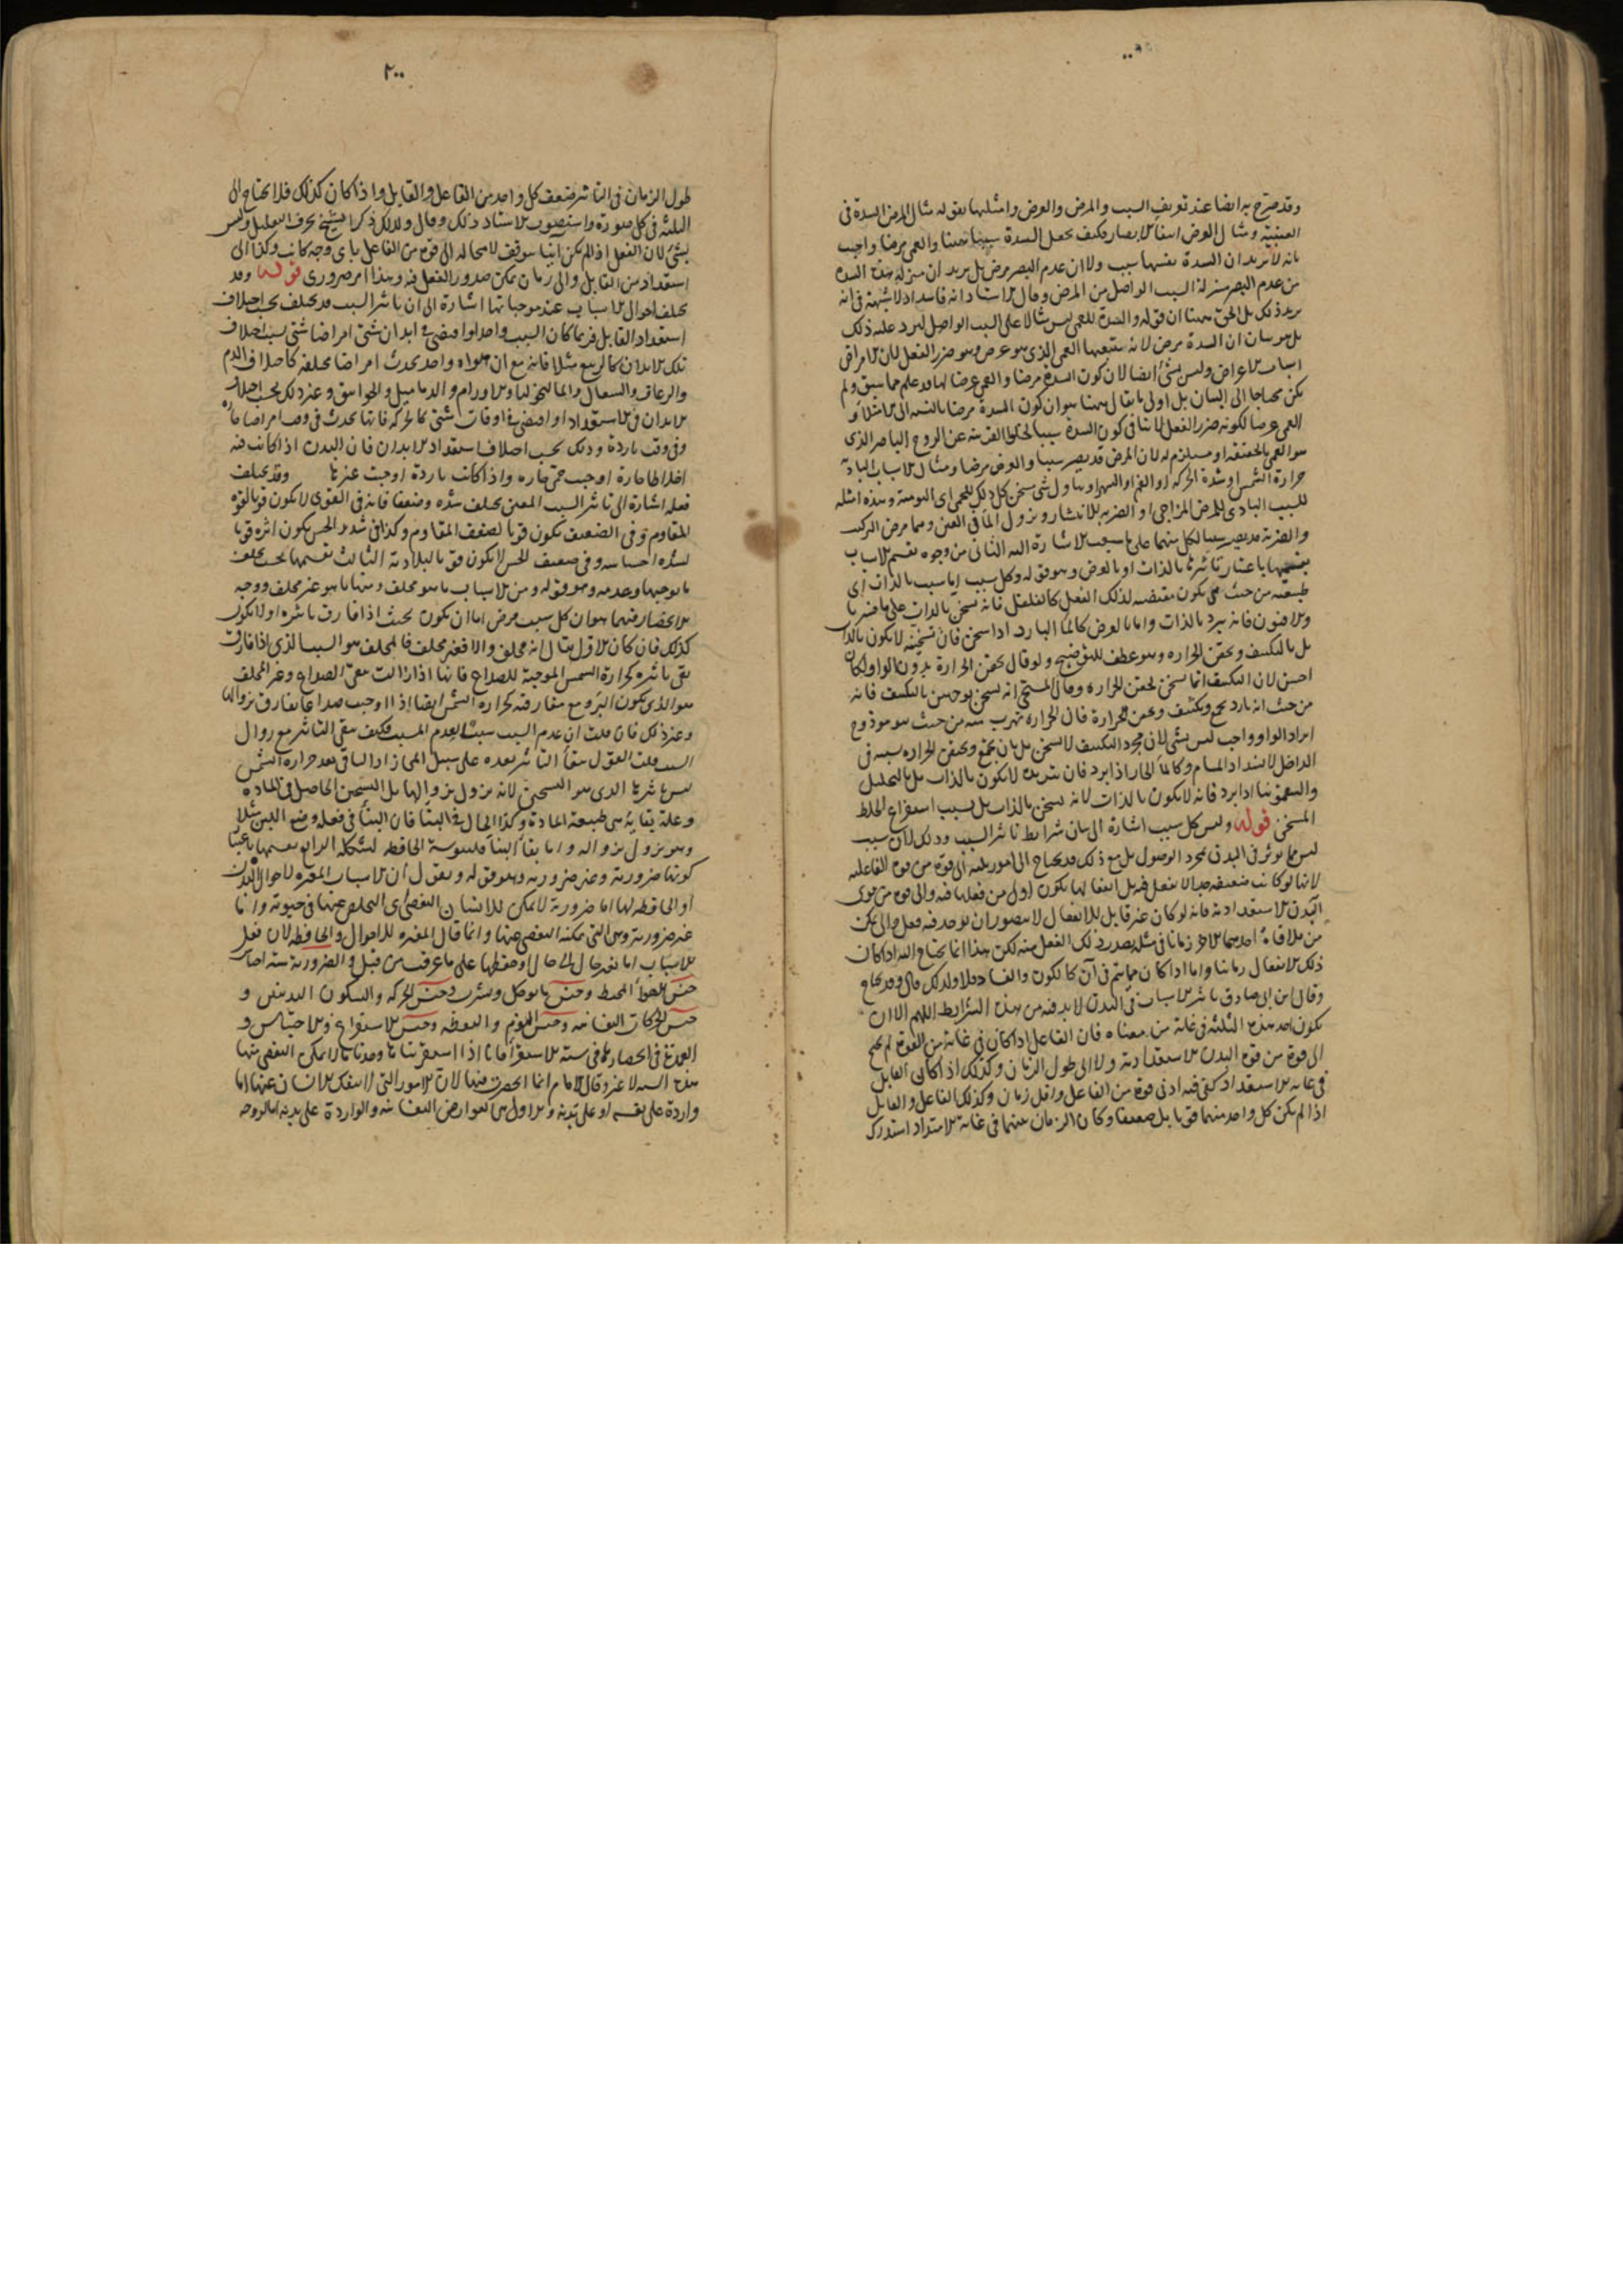 وقد صرح به ايضا عند تعريف السبب والمرض والعرض وامثلتها بقوله مثال المرض السدة في
العنبية ومثال العرض انتفاء الابصار فكيف يجعل السدة سببا ههنا والعمى مرضا واجيب
بانه لا يريد ان السدة نفسها سبب ولا ان عدم البصر مرض بل يريد ان منزلة هذه السدة
من عدم البصر منزلة السبب الواصل من المرض وقال الاستاد انه فاسد اذ لا شبهة في انه
يريد ذلك بل الحق ههنا ان قوله والسدة للعمى ليس مثالا على السبب الواصل ليرد عليه ذلك
بل هو بيان ان السدة مرض لانه يتبعها العمى الذي هو عرض وهو ضرر الفعل لان الامراض
اسباب الاعراض وليس بشئ ايضا لان كون السدة مرضا والعمى عرضا لها قد علم مما سبق ولم
يكن محتاجا الى البيان بل اولى ما يقال ههنا هو ان كون السدة مرضا بالنسبة الى الامتلاء و
العمى عرضا لكونه ضرر الفعل لا ينافي كون السدة سببا
هو العمى بالحقيقة او مستلزم له لان المرض قد يصير سببا والعرض مرضا ومثال الاسباب البادية
حرارة الشمس وشدة الحركة او الغم او السهر او تناول شئ مسخن كل ذلك للحمى اي اليومية وهذه امثلة
للسبب البادي للمرض المزاجي او الضربة للانتشار ونزول الماء في العين وهما مرض التركيب
والضربة قد يصير سببا لكل منهما على ما سيجئ الاشارة اليه الثاني من وجوه تقسيم الاسباب
تقسيمها باعتبار تاثيرها بالذات او بالعرض وهو قوله وكل سبب اما سبب بالذات اي
طبيعته من حيث هي يكون مقتضية لذلك الفعل كالفلفل فانه يسخن بالذات على ما فسر
والافيون فانه يبرد بالذات واما بالعرض كالماء البارد اذا سخن فان تسخينه لا يكون بالذات
بل بالتكثيف وبحقن الحرارة وهو عطف للتوضيح ولو قال بحقن الحرارة بدون الواو لكان
احسن لان التكثيف انما يسخن لحقن الحرارة وقال المسيحي انه يسخن بوجهين بالتكثيف فانه
من حيث انه بارد يجمع ويكثف وبحقن الحرارة فان الحرارة تهرب منه من حيث هو موذ وح
ايراد الواو واجب ليس بشئ لان مجرد التكثيف لا يسخن بل بان يجمع ويحقن الحرارة بسببه في
الداخل لانسداد المسام وكالماء الحار اذا برد فان تبريده لا يكون بالذات بل بالتحليل
والسقمونيا اذا برد فانه لا يكون بالذات لانه يسخن بالذات بل بسبب استفراغ الخلط
المسخن قوله وليس كل سبب اشارة الى بيان شرايط تاثير السبب وذلك لان كل سبب
ليس مما يوثر في البدن بمجرد الوصول بل مع ذلك قد يحتاج الى امور ثلثة الى قوة من قوة الفاعلية
لانها لو كانت ضعيفة جدا لا يفعل فيه بل انفعالها يكون اول من فعلها فيه والى قوة من قوى
البدن الاستعدادية فانه لو كان غير قابل للانفعال لا يتصور ان يوجد فيه فعل والى تمكن
من ملاقاة احدهما الاخر زمانا في مثله يصدر ذلك الفعل عنه لكن هذا انما يحتاج اليه اذا كان
ذلك الانفعال زمانيا واما اذا كان مما يتم في آن كالكون والفساد فلا ولذلك قال وقد يحتاج
وقال ابن ابي صادق تاثير الاسباب في البدن لا بد فيه من هذه الشرايط اللهم الا ان
يكون احد هذه الثلثة في غاية من معناه فان الفاعل اذا كان في غاية من القوة لم يحتج
الى قوة من قوة البدن الاستعدادية ولا الى طول الزمان وكذلك اذا كان القابل
في غاية الاستعداد كفى فيه ادنى قوة من الفاعل واقل زمان وكذلك الفاعل والقابل
اذا لم يكن كل واحد منهما قويا بل ضعيفا وكان الزمان بينهما في غاية الامتداد استدرك
٢٠٠
طول الزمان في التاثير ضعف كل واحد من الفاعل والقابل واذا كان كذلك فلا يحتاج الى
الثلثة في كل صورة واستصوب الاستاد ذلك وقال ولذلك ذكر الشيخ بحرف التقليل وليس
بشئ لان الفعل اذا لم يكن آنيا يتوقف لا محالة الى قوة من الفاعل باي وجه كانت وكذا الى
استعداد من القابل والى زمان يمكن صدور الفعل فيه وهذا امر ضروري قوله وقد
يختلف احوال الاسباب عند موجباتها اشارة الى ان تاثير السبب قد يختلف بحسب اختلاف
استعداد القابل فربما كان السبب واحدا واقتضى في ابدان شتى امراضا شتى بسبب اختلاف
تلك الابدان كالربيع مثلا فانه مع ان هواه واحد يحدث امراضا مختلفة كاختلاف الدم
والرعاف والسعال والماليخوليا والاورام والدماميل والخوانيق وغير ذلك بحسب اختلاف
الابدان في الاستعداد او اقتضى في اوقات شتى كالحركة فانها تحدث في وقت امراضا حارة
وفي وقت باردة وذلك بحسب اختلاف استعداد الابدان فان البدن اذا كانت فيه
اخلاطا حارة اوجبت حمى حارة واذا كانت باردة اوجبت غيرها وقد يختلف
فعله اشارة الى تاثير السبب المعين يختلف شدة وضعفا فانه في القوي لا يكون قويا لقوة
المقاوم وفي الضعيف يكون قويا لضعف المقاوم وكذا في شديد الحس يكون اثره قويا
لشدة احساسه وفي ضعيف الحس لا يكون قويا لبلادته الثالث تقسيمها بحسب تخلف
ما توجبها وعدمه وهو قوله ومن الاسباب ما هو مخلف ومنها ما هو غير مخلف ووجه
الانحصار فيهما هو ان كل سبب مرض اما ان يكون بحيث اذا فارق تاثيره او لا يكون
كذلك فان كان الاول يقال انه مخلف والا فغير مخلف فالمخلف هو السبب الذي اذا فارق
بقى تاثيره كحرارة الشمس الموجبة للصداع فانها اذا زالت بقى الصداع وغير المخلف
هو الذي يكون البرء مع مفارقته كحرارة الشمس ايضا اذا اوجبت صداعا يفارق بزوالها
وغير ذلك فان قلت ان عدم السبب سبب لعدم المسبب فكيف يبقى التاثير مع زوال
السبب قلت القول ببقاء التاثير بعده على سبيل المجاز اذ الباقي بعد حرارة الشمس
ليس تاثيرها الذي هو التسخين لانه يزول بزوالها بل التسخن الحاصل في المادة
وعلة بقائه هي طبيعة المادة وكذا الحال في البناء فان البناء في فعله وضع اللبن مثلا
وهو يزول بزواله واما بقاء البناء فليبوسة الحافظة لشكله الرابع تقسيمها باعتبار
كونها ضرورية وغير ضرورية وهو قوله ونقول ان الاسباب المغيرة لاحوال البدن
او الحافظة لها اما ضرورية لا يمكن للانسان التفصى اى التخلص عنها في حيوته واما
غير ضرورية وهي التي يمكنه التفصى عنها وانما قال المغيرة للاحوال والحافظة لان فعل
الاسباب اما تغير حال الى حال او حفظها على ما عرفت من قبل والضرورية ستة اجناس
جنس الهواء المحيط وجنس ما يوكل ويشرب وجنس الحركة والسكون البدنيين و
جنس الحركات النفسانية وجنس النوم واليقظة وجنس الاستفراغ والاحتباس و
العمدة في انحصارها في ستة الاستقراء فانا اذا استقرينا ما وجدنا ما لا يمكن التفصى عنها
هذه الستة لا غير وقال الامام انما انحصرت فيها لان الامور التي لا ينفك الانسان عنها اما
واردة على نفسه او على بدنه والاول هي العوارض النفسانية والواردة على بدنه اما لروحه